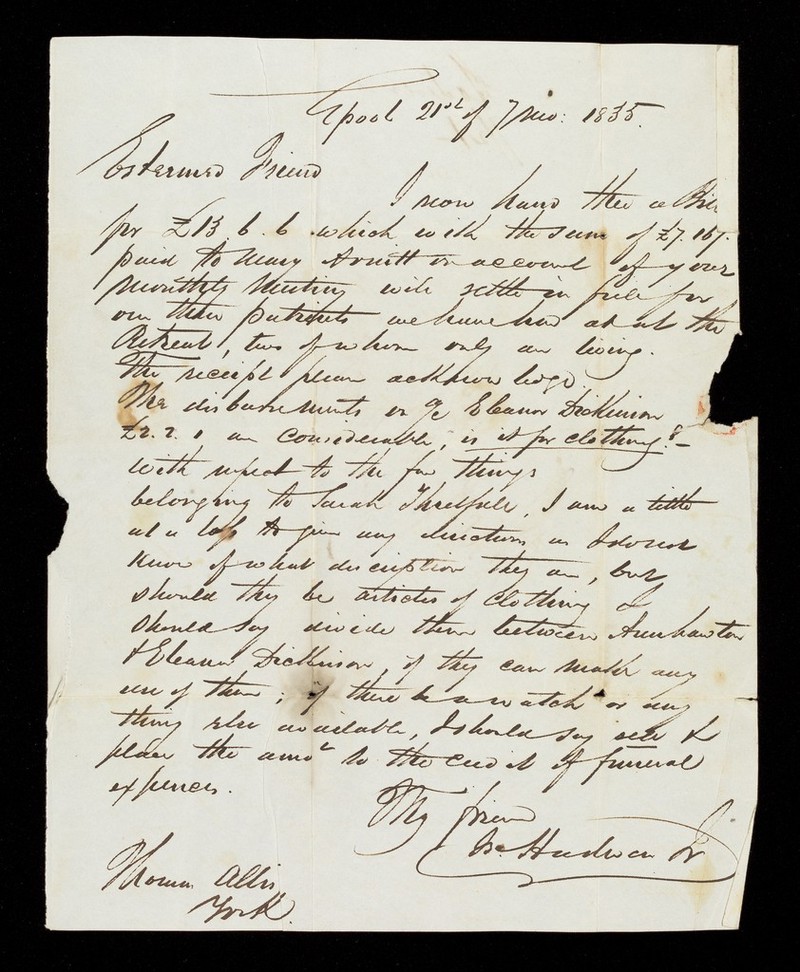 Lpool 21st of 7 mo: 1835.
Esteemed Friend
I now hand thee a Bill
for £13.6.6 which with the sum of £7.16/.
paid to Mary Armitt on account of your
Monthly Meeting will settle in full for
our three patients we have had at the
Retreat, two of whom only are living.
The receipt please acknowledge
The disbursements on a/c Eleanor Dickinson
£2.2.1 are considerable, is it for clothing?—
With respect to the few things
belonging to Sarah Threlfall, I am a little
at a loss to give any directions as I do not
know of what discription they are, but
should they be articles of clothing I
should say divide them between
& Eleanor Dickinson, if they can make any
use of them; if there be a watch or any
thing else available, I should say sell &
place the amot to the credit of funeral
expences.
Thy friend
Hudson Jr
Thomas Allis
York.